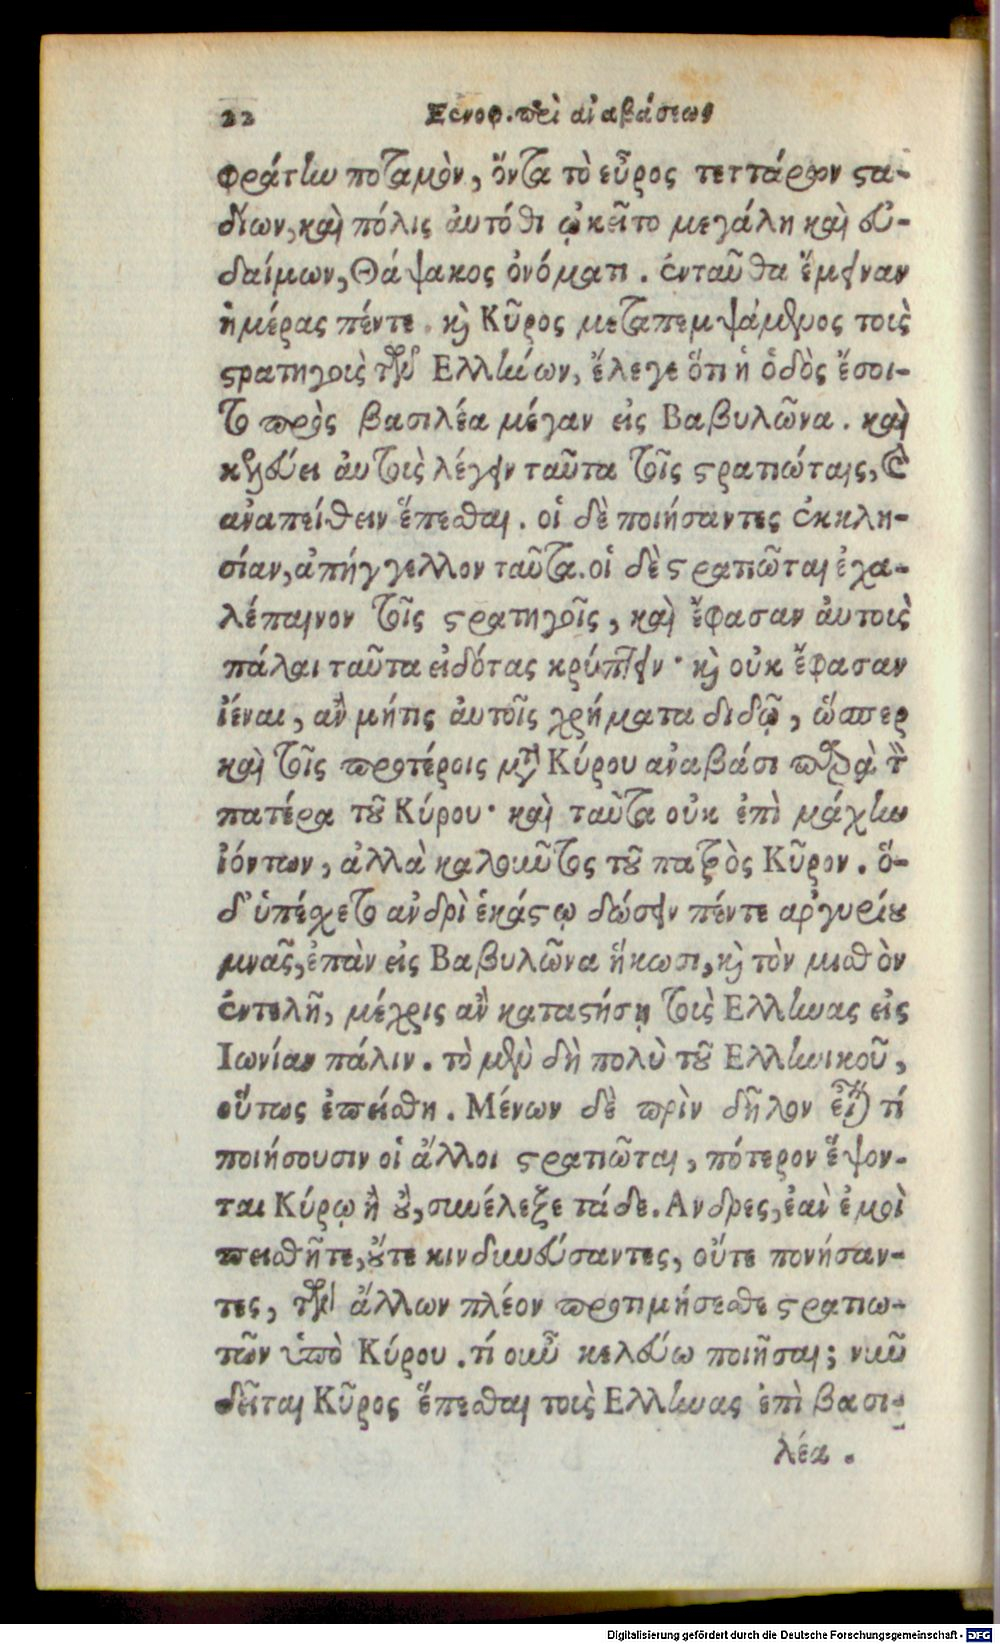 22 Ξενοφ. περὶ ἀναβάσεως
φράτην ποταμὸν, ὄντα τὸ εὖρος τεττάρων στα-
δίων, καὶ πόλις αὐτόθι ᾠκεῖτο μεγάλη καὶ εὐ-
δαίμων, Θάψακος ὀνόματι. ἐνταῦθα ἔμειναν
ἡμέρας πέντε. καὶ Κῦρος μεταπεμψάμενος τοὺς
στρατηγοὺς τῶν Ελλήνων, ἔλεγε ὅτι ἡ ὁδὸς ἔσοι-
το πρὸς βασιλέα μέγαν εἰς Βαβυλῶνα. καὶ
κελεύει αὐτοὺς λέγειν ταῦτα τοῖς στρατιώταις, καὶ
ἀναπείθειν ἕπεσθαι. οἱ δὲ ποιήσαντες ἐκκλη-
σίαν, ἀπήγγελλον ταῦτα. οἱ δὲ στρατιῶται ἐχα-
λέπαινον τοῖς στρατηγοῖς, καὶ ἔφασαν αὐτοὺς
πάλαι ταῦτα εἰδότας κρύπτειν· καὶ οὐκ ἔφασαν
ἰέναι, ἂν μήτις αὐτοῖς χρήματα διδῷ, ὥσπερ
καὶ τοῖς προτέροις μετὰ Κύρου ἀναβάσι παρὰ τὸν
πατέρα τοῦ Κύρου· καὶ ταῦτα οὐκ ἐπὶ μάχην
ἰόντων, ἀλλὰ καλοῦντος τοῦ πατρὸς Κῦρον. ὅ-
δ' ὑπέχετο ἀνδρὶ ἑκάστῳ δώσειν πέντε ἀργυρίου
μνᾶς, ἐπὰν εἰς Βαβυλῶνα ἥκωσι, καὶ τὸν μισθὸν
ἐντελῆ, μέχρις ἂν καταστήσῃ τοὺς Ελληνας εἰς
Ιωνίαν πάλιν. τὸ μὲν δὴ πολὺ τοῦ Ελληνικοῦ,
οὕτως ἐπείσθη. Μένων δὲ πρὶν δῆλον εἶναι τί
ποιήσουσιν οἱ ἄλλοι στρατιῶται, πότερον ἕψον-
ται Κύρῳ ἢ οὔ, συνέλεξε τάδε. Ανδρες, ἐὰν ἐμοὶ
πεισθῆτε, οὔτε κινδυνεύσαντες, οὔτε πονήσαν-
τες, τῶν ἄλλων πλέον προτιμήσεσθε στρατιω-
τῶν ὑπὸ Κύρου. τί οὖν κελεύω ποιῆσαι; νῦν
δεῖται Κῦρος ἕπεσθαι τοὺς Ελληνας ἐπὶ βασι-
λέα.
Digitalisierung gefördert durch die Deutsche Forschungsgemeinschaft - DFG